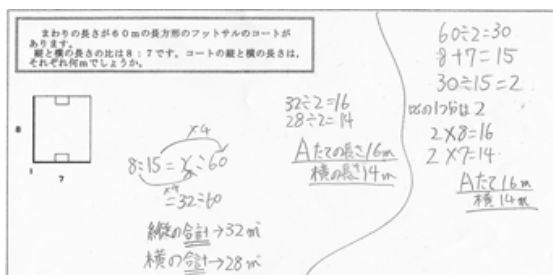 まわりの長さが60mの長方形のフットサルのコートが
あります。
縦と横の長さの比は8：7です。コートの縦と横の長さは、
それぞれ何mでしょうか。
8
7
×4
8:15=x:60
×4
=32:60
縦の合計→32㎡
横の合計→28㎡
32÷2=16
28÷2=14
Aたての長さ16m
横の長さ14m
60÷2=30
8+7=15
30÷15=2
比の1つ分は2
2×8=16
2×7=14
Aたて16m
横14m